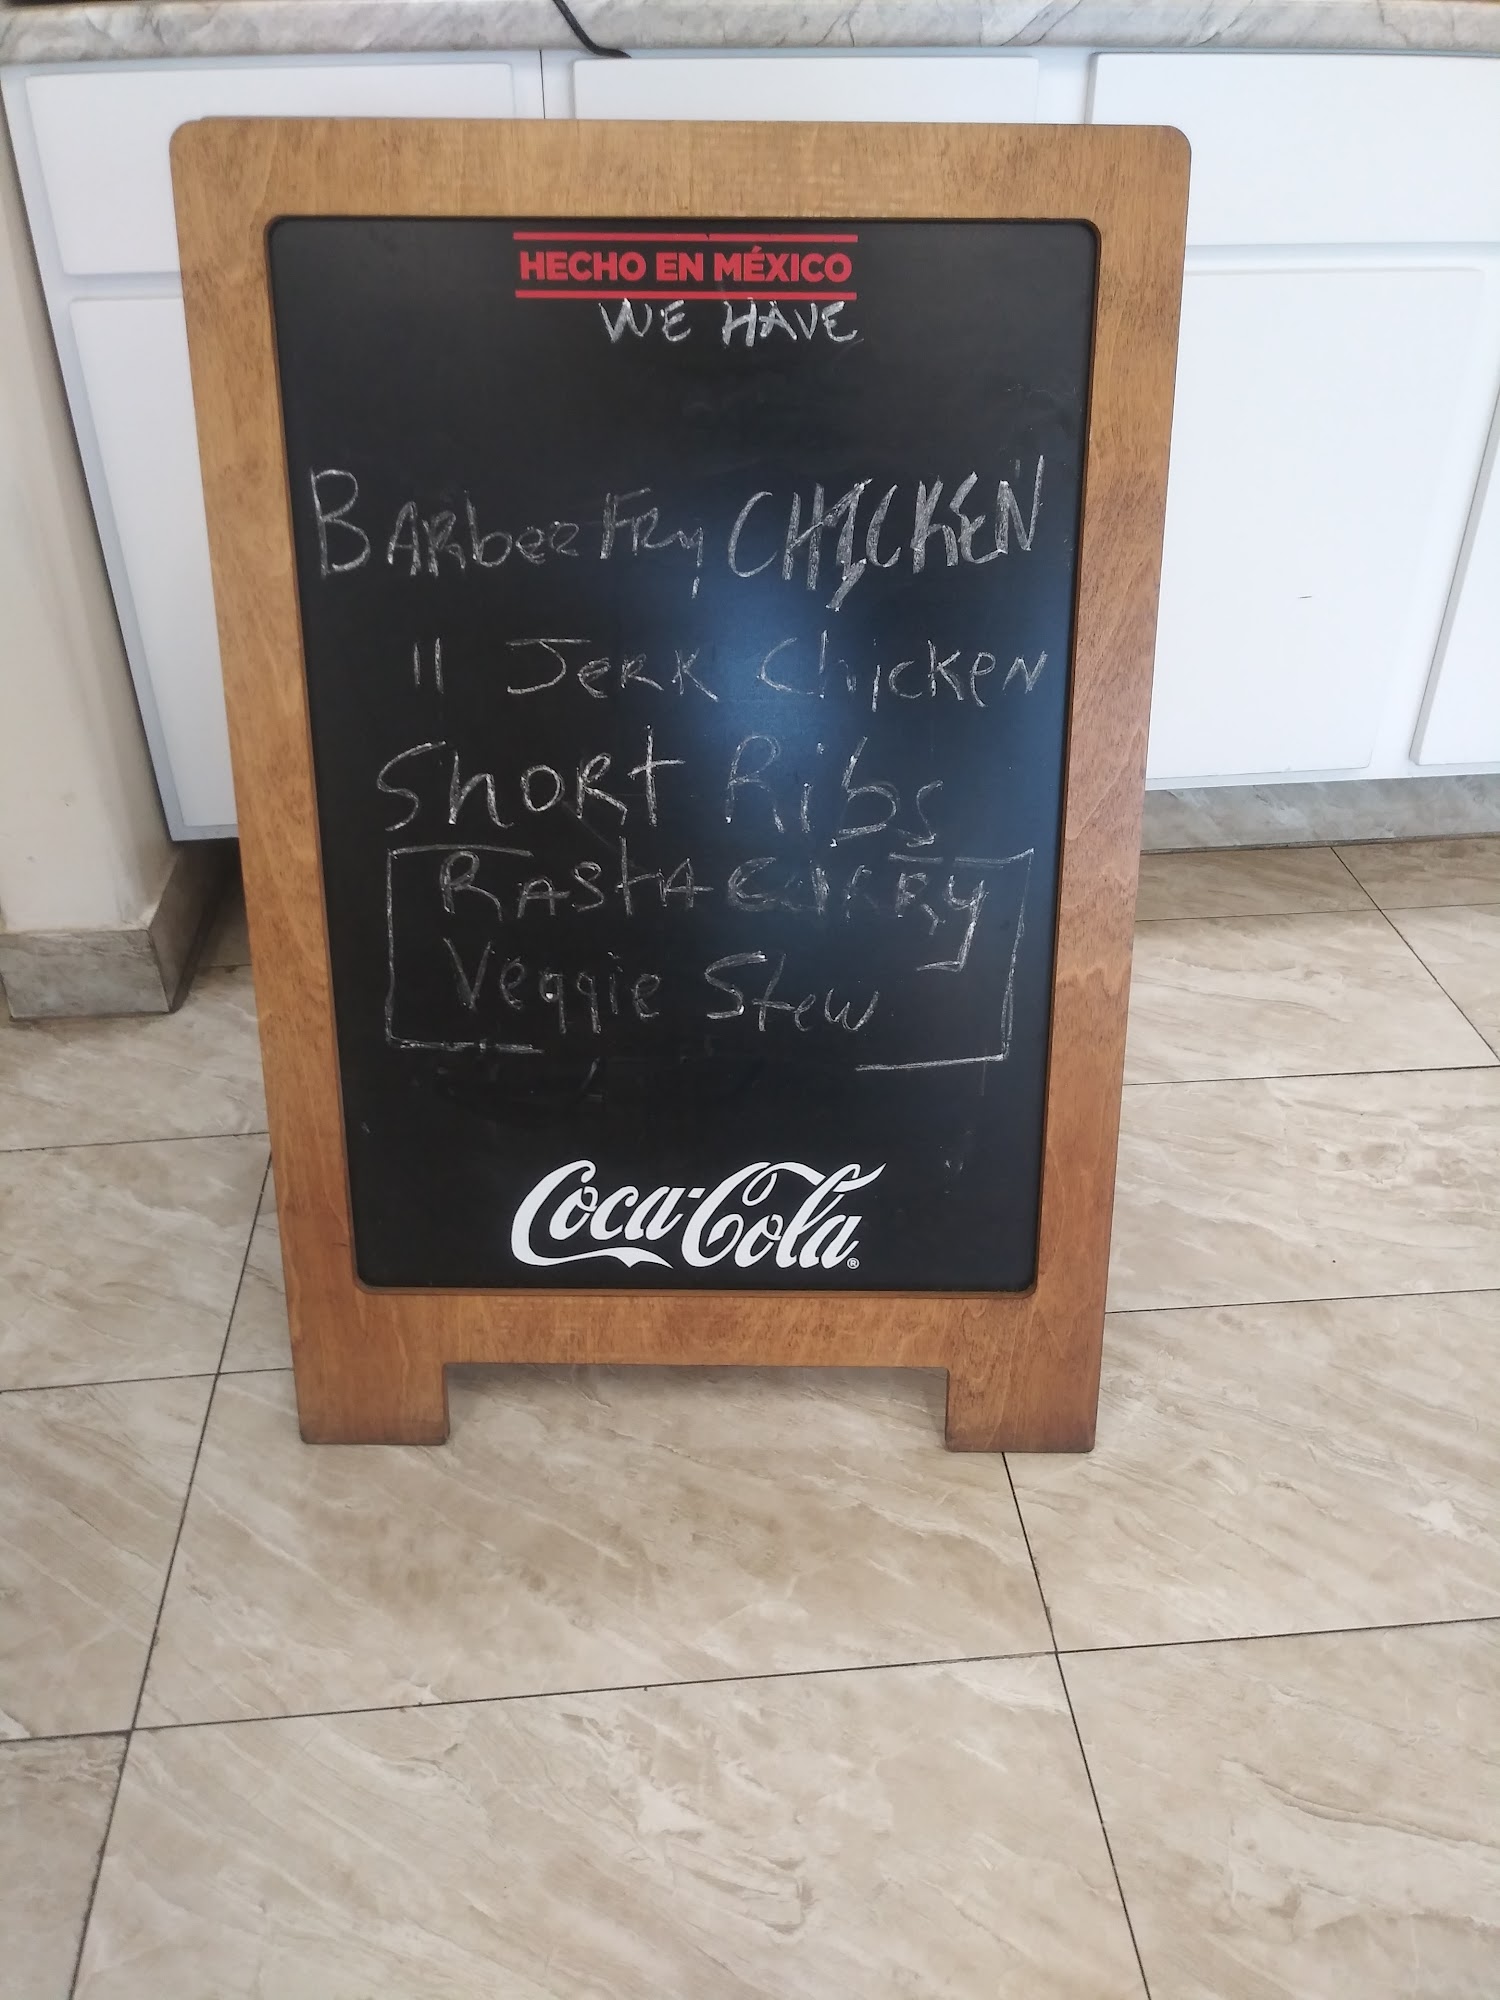 HECHO EN MÉXICO
WE HAVE
BARbee FRy CHICKEN
" JeRK ChickeN
ShoRt Ribs
RAStA CURRy
Veggie Stew
Coca-Cola®